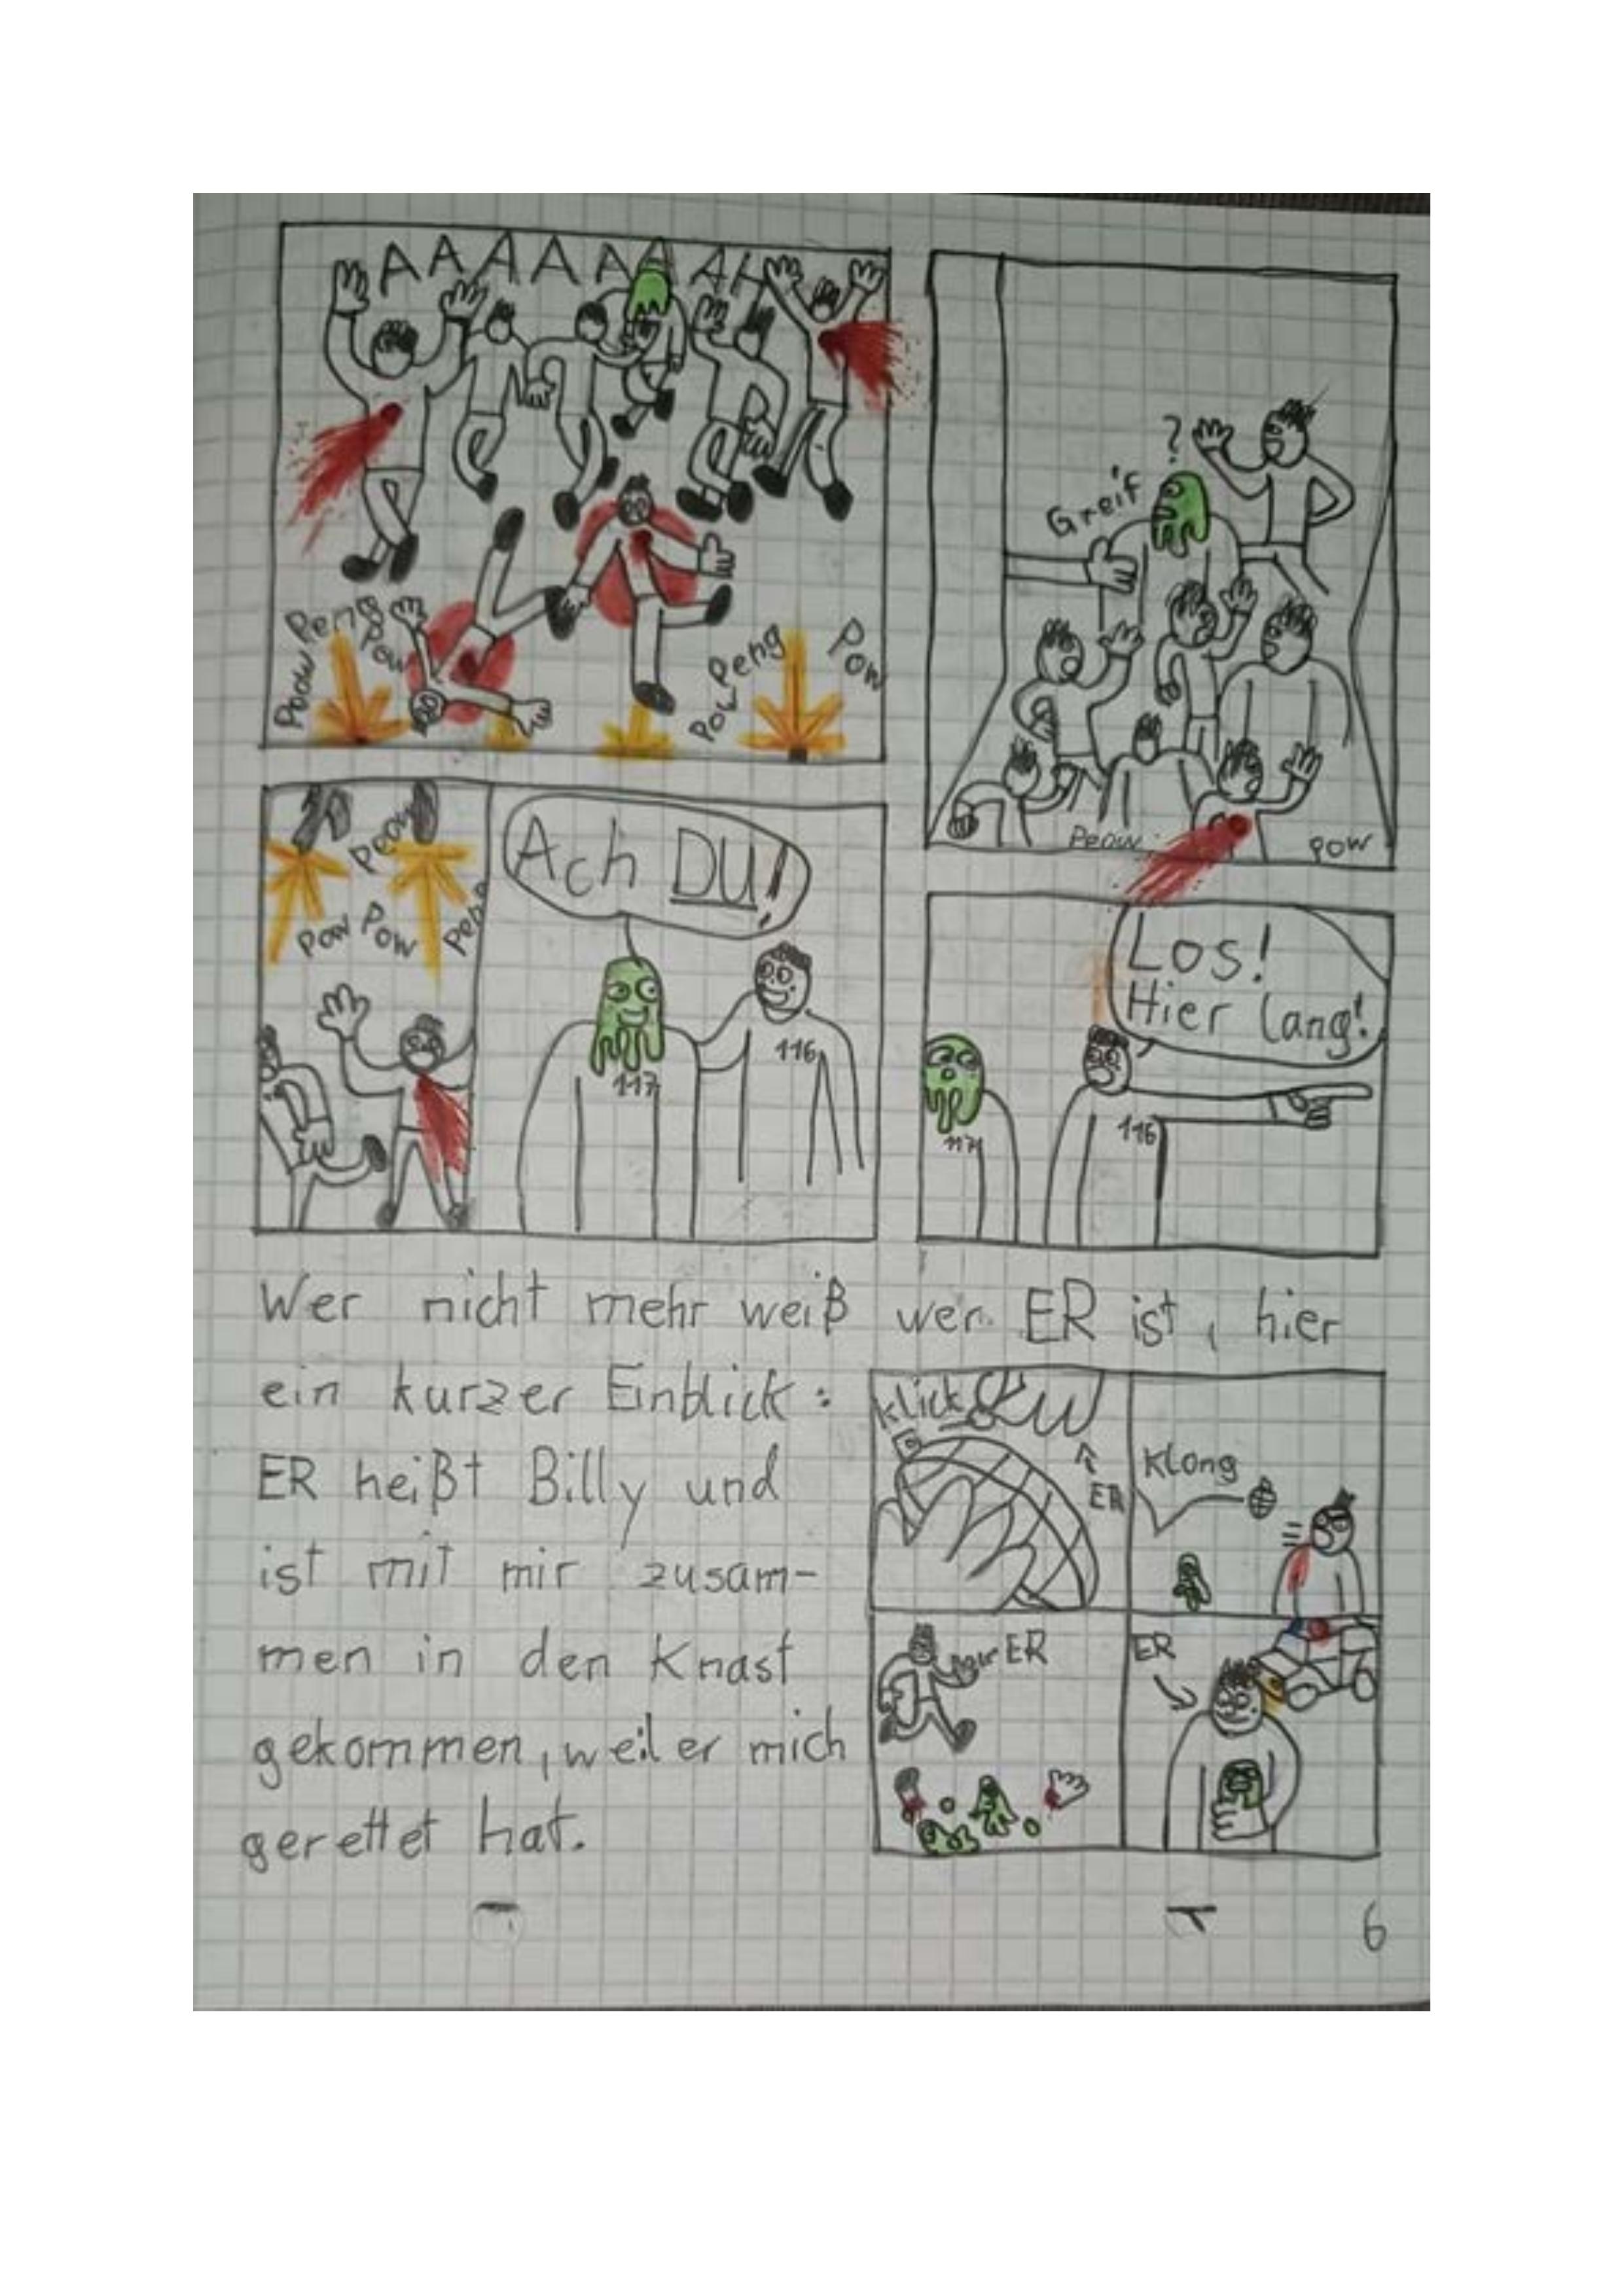 AAAAAAAH
Peng
Poow
Pow
Peng
Pow
Pow
?
Greif
Peow
Pow
Peow
Pow
Pow
Ach DU!
117
116
Los!
Hier lang!
117
116
Wer nicht mehr weiß wer ER ist, hier
ein kurzer Einblick:
ER heißt Billy und
ist mit mir zusam-
men in den Knast
gekommen, weil er mich
gerettet hat.
Klick
ER
Klong
ER
ER
6